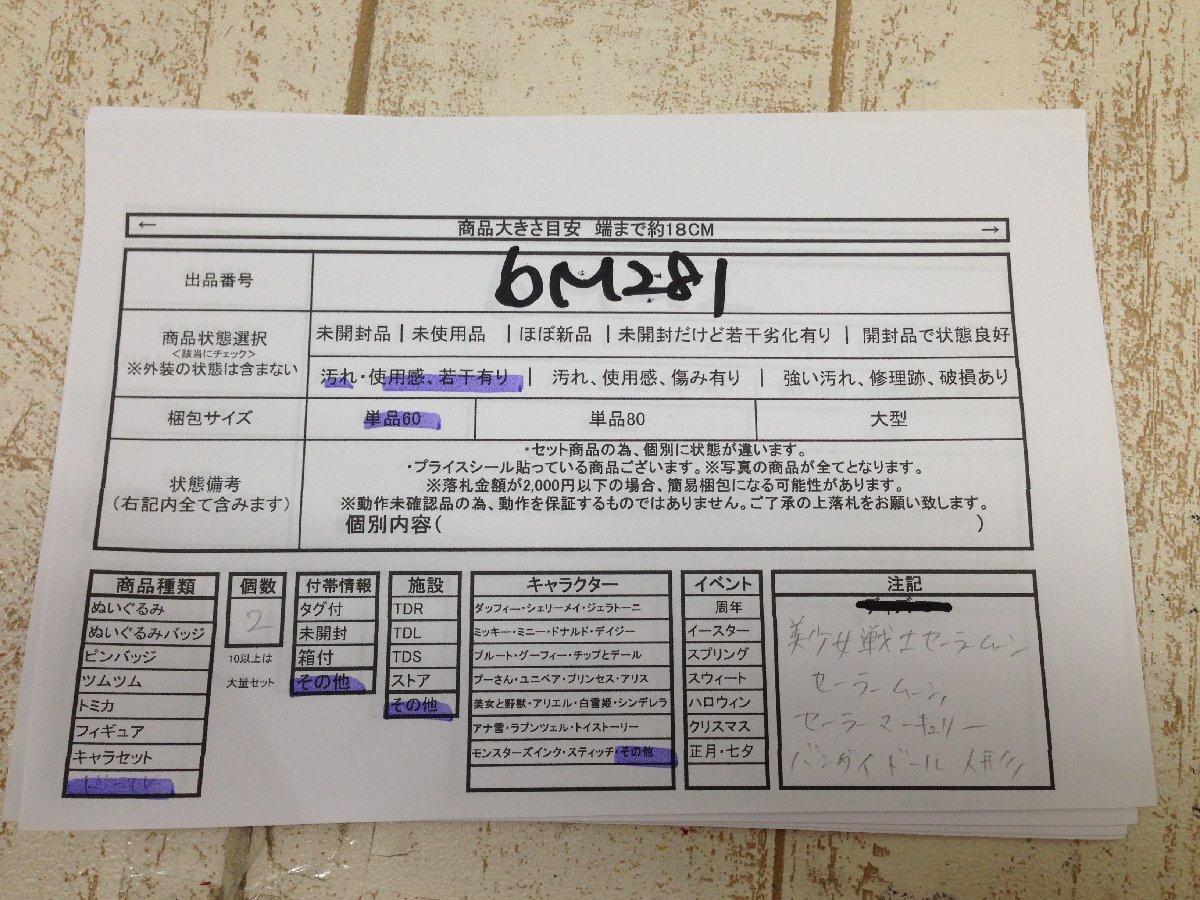 ← 商品大きさ目安 端まで約18CM →
出品番号 6M281
商品状態選択
<該当にチェック>
※外装の状態は含まない
未開封品 | 未使用品 | ほぼ新品 | 未開封だけど若干劣化有り | 開封品で状態良好
汚れ・使用感、若干有り | 汚れ、使用感、傷み有り | 強い汚れ、修理跡、破損あり
梱包サイズ 単品60 単品80 大型
状態備考
(右記内全て含みます)
・セット商品の為、個別に状態が違います。
・プライスシール貼っている商品ございます。※写真の商品が全てとなります。
※落札金額が2,000円以下の場合、簡易梱包になる可能性があります。
※動作未確認品の為、動作を保証するものではありません。ご了承の上落札をお願い致します。
個別内容( )
商品種類
ぬいぐるみ
ぬいぐるみバッジ
ピンバッジ
ツムツム
トミカ
フィギュア
キャラセット
個数
2
10以上は
大量セット
付帯情報
タグ付
未開封
箱付
その他
施設
TDR
TDL
TDS
ストア
その他
キャラクター
ダッフィー・シェリーメイ・ジェラトーニ
ミッキー・ミニー・ドナルド・デイジー
プルート・グーフィー・チップとデール
プーさん・ユニベア・プリンセス・アリス
美女と野獣・アリエル・白雪姫・シンデレラ
アナ雪・ラプンツェル・トイストーリー
モンスターズインク・スティッチ・その他
イベント
周年
イースター
スプリング
スウィート
ハロウィン
クリスマス
正月・七夕
注記
美少女戦士セーラームーン
セーラームーン
セーラーマーキュリー
バンダイ ドール 人形